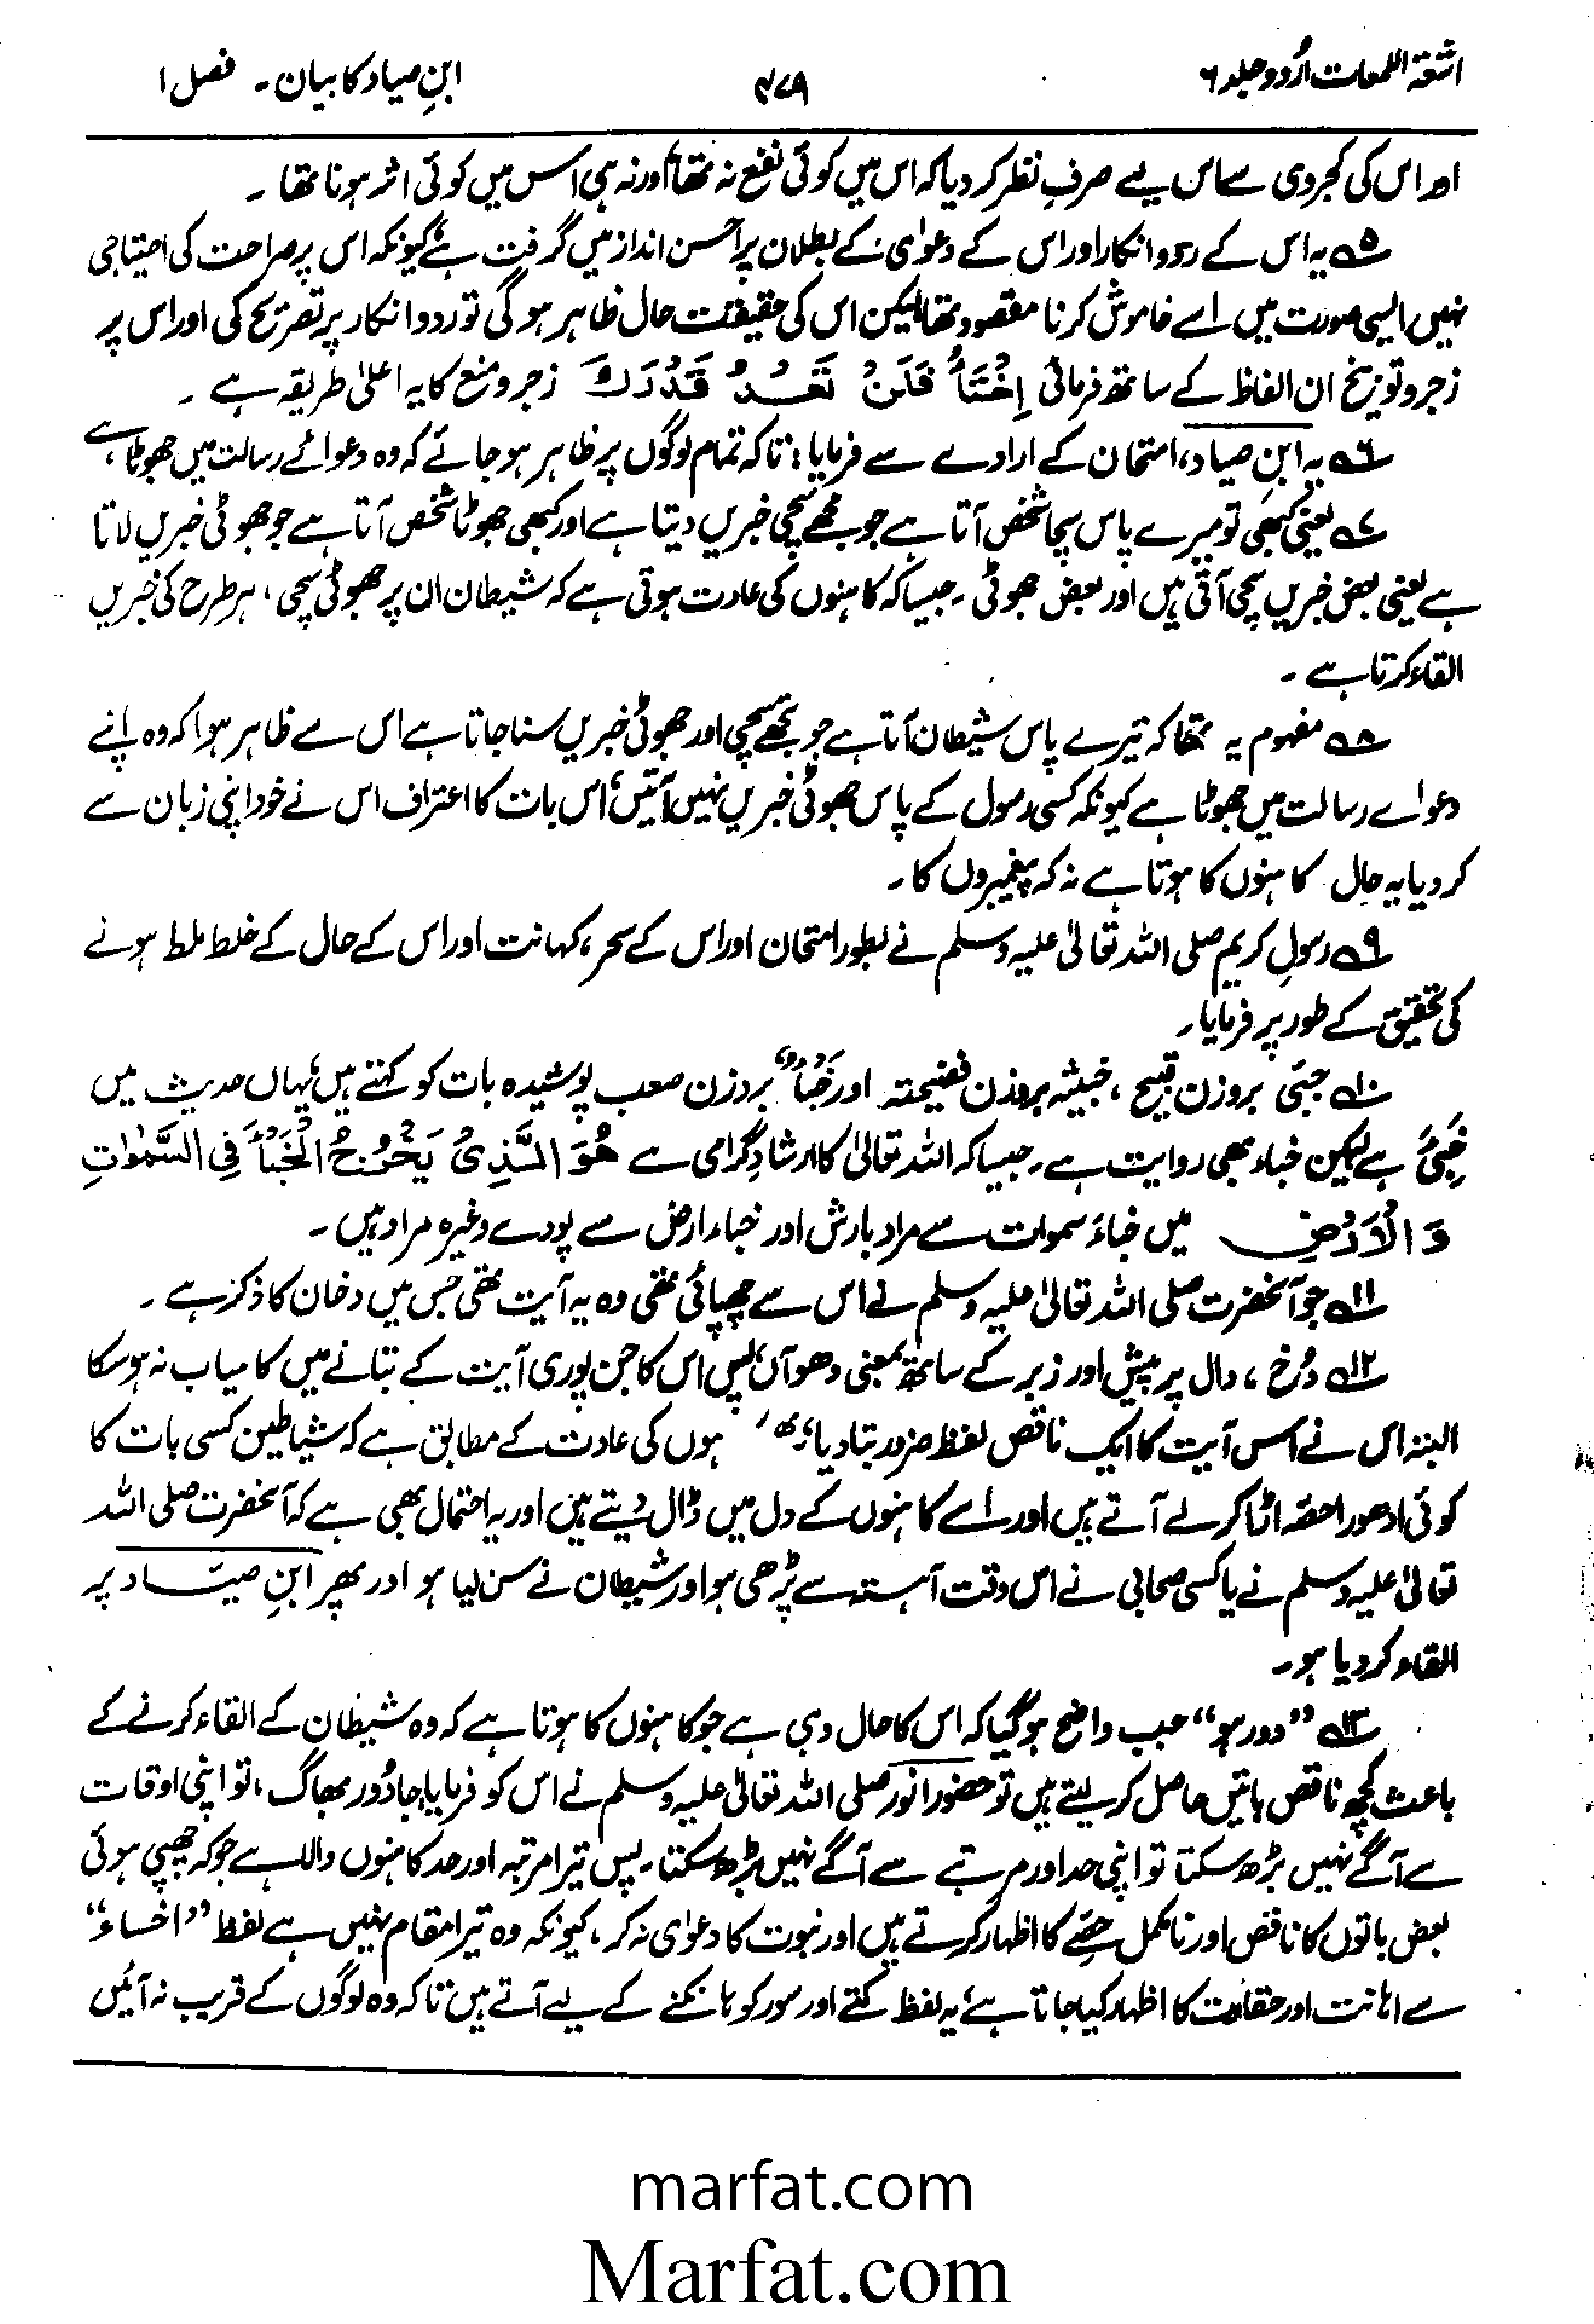 اشعۃ اللمعات اردو جلد ۶
۴۷۹
ابنِ صیاد کا بیان۔ فصل ۱
اور اس کی کجروی سے اس لیے صرفِ نظر کر دیا کہ اس میں کوئی نفع نہ تھا اور نہ ہی اس میں کوئی اثر ہونا تھا ۔
۵ یہ اس کے رد و انکار اور اس کے دعوٰی کے بطلان پر احسن انداز میں گرفت ہے کیونکہ اس پر صراحت کی احتیاجی
نہیں ایسی صورت میں اسے خاموش کرنا مقصود تھا لیکن اس کی حقیقت حال ظاہر ہو گی تو رد و انکار پر تصریح کی اور اس پر
زجر و توبیخ ان الفاظ کے ساتھ فرمائی اِخْسَأْ فَلَنْ تَعْدُ قَدْرَكَ زجر و منع کا یہ اعلیٰ طریقہ ہے ۔
۶ یہ ابنِ صیاد، امتحان کے ارادے سے فرمایا: تاکہ تمام لوگوں پر ظاہر ہو جائے کہ وہ دعوائے رسالت میں جھوٹا ہے
۷ یعنی کبھی تو میرے پاس سچا شخص آتا ہے جو مجھے سچی خبریں دیتا ہے اور کبھی جھوٹا شخص آتا ہے جو جھوٹی خبریں لاتا
ہے یعنی بعض خبریں سچی آتی ہیں اور بعض جھوٹی ۔ جیسا کہ کاہنوں کی عادت ہوتی ہے کہ شیطان ان پر جھوٹی سچی، ہر طرح کی خبریں
القاء کرتا ہے ۔
۸ مفہوم یہ تھا کہ تیرے پاس شیطان آتا ہے جو تجھے سچی اور جھوٹی خبریں سنا جاتا ہے اس سے ظاہر ہوا کہ وہ اپنے
دعوائے رسالت میں جھوٹا ہے کیونکہ کسی رسول کے پاس جھوٹی خبریں نہیں آتیں، اس بات کا اعتراف اس نے خود اپنی زبان سے
کر دیا یہ حال کاہنوں کا ہوتا ہے نہ کہ پیغمبروں کا ۔
۹ رسولِ کریم صلی اللہ تعالیٰ علیہ وسلم نے بطور امتحان اور اس کے سحر، کہانت اور اس کے حال کے خلط ملط ہونے
کی تحقیق کے طور پر فرمایا ۔
۱۰ خبئی بروزن قبیح ، خبیثہ بروزن فضیحتہ اور خَبْأٌ بروزن صعب پوشیدہ بات کو کہتے ہیں، یہاں حدیث میں
خَبِیْءٌ ہے لیکن خباء بھی روایت ہے ۔ جیسا کہ اللہ تعالیٰ کا ارشادِ گرامی ہے هُوَ الَّذِیْ یُخْرِجُ الْخَبْأَ فِی السَّمٰوٰتِ
وَ الْاَرْضِ میں خباءَ سموات سے مراد بارش اور خباء ارض سے پودے وغیرہ مراد ہیں ۔
۱۱ جو آنحضرت صلی اللہ تعالیٰ علیہ وسلم نے اس سے چھپائی تھی وہ یہ آیت تھی جس میں دخان کا ذکر ہے ۔
۱۲ دُخ ، دال پر پیش اور زبر کے ساتھ بمعنی دھواں، پس اس کا جن پوری آیت کے بتانے میں کامیاب نہ ہو سکا
البتہ اس نے اس آیت کا ایک ناقص لفظ ضرور بتا دیا، ہوں کی عادت کے مطابق ہے کہ شیاطین کسی بات کا
کوئی ادھورا حصّہ اڑا کر لے آتے ہیں اور اسے کاہنوں کے دل میں ڈال دیتے ہیں اور یہ احتمال بھی ہے کہ آنحضرت صلی اللہ
تعالیٰ علیہ وسلم نے یا کسی صحابی نے اس وقت آہستہ سے پڑھی ہو اور شیطان نے سن لیا ہو اور پھر ابنِ صیّاد پر
القاء کر دیا ہو ۔
۱۳ "دور ہو" جب واضح ہو گیا کہ اس کا حال وہی ہے جو کاہنوں کا ہوتا ہے کہ وہ شیطان کے القاء کرنے کے
باعث کچھ ناقص باتیں حاصل کر لیتے ہیں تو حضور انور صلی اللہ تعالیٰ علیہ وسلم نے اس کو فرمایا جا دُور بھاگ، تو اپنی اوقات
سے آگے نہیں بڑھ سکتا تو اپنی حد اور مرتبے سے آگے نہیں بڑھ سکتا ۔ پس تیرا مرتبہ اور حد کاہنوں والا ہے جو کہ چھپی ہوئی
بعض باتوں کا ناقص اور نامکمل حصّے کا اظہار کرتے ہیں اور نبوت کا دعوٰی نہ کر، کیونکہ وہ تیرا مقام نہیں ہے لفظ "اخساء"
سے اہانت اور حقارت کا اظہار کیا جاتا ہے، یہ لفظ کتے اور سور کو ہانکنے کے لیے آتے ہیں تاکہ وہ لوگوں کے قریب نہ آئیں
marfat.com
Marfat.com